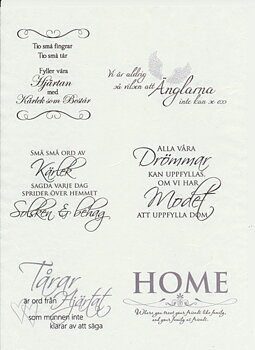 Tio små fingrar
Tio små tår
Fyller våra
Hjärtan
med
Kärlek som Består
Vi är aldrig
så vilsen att
Änglarna
inte kan se oss
SMÅ SMÅ ORD AV
Kärlek
SAGDA VARJE DAG
SPRIDER ÖVER HEMMET
Solsken & behag
ALLA VÅRA
Drömmar
KAN UPPFYLLAS,
OM VI HAR
Modet
ATT UPPFYLLA DOM
Tårar
är ord från Hjärtat
som munnen inte
klarar av att säga
HOME
Where you treat your friends like family,
and your family as friends.